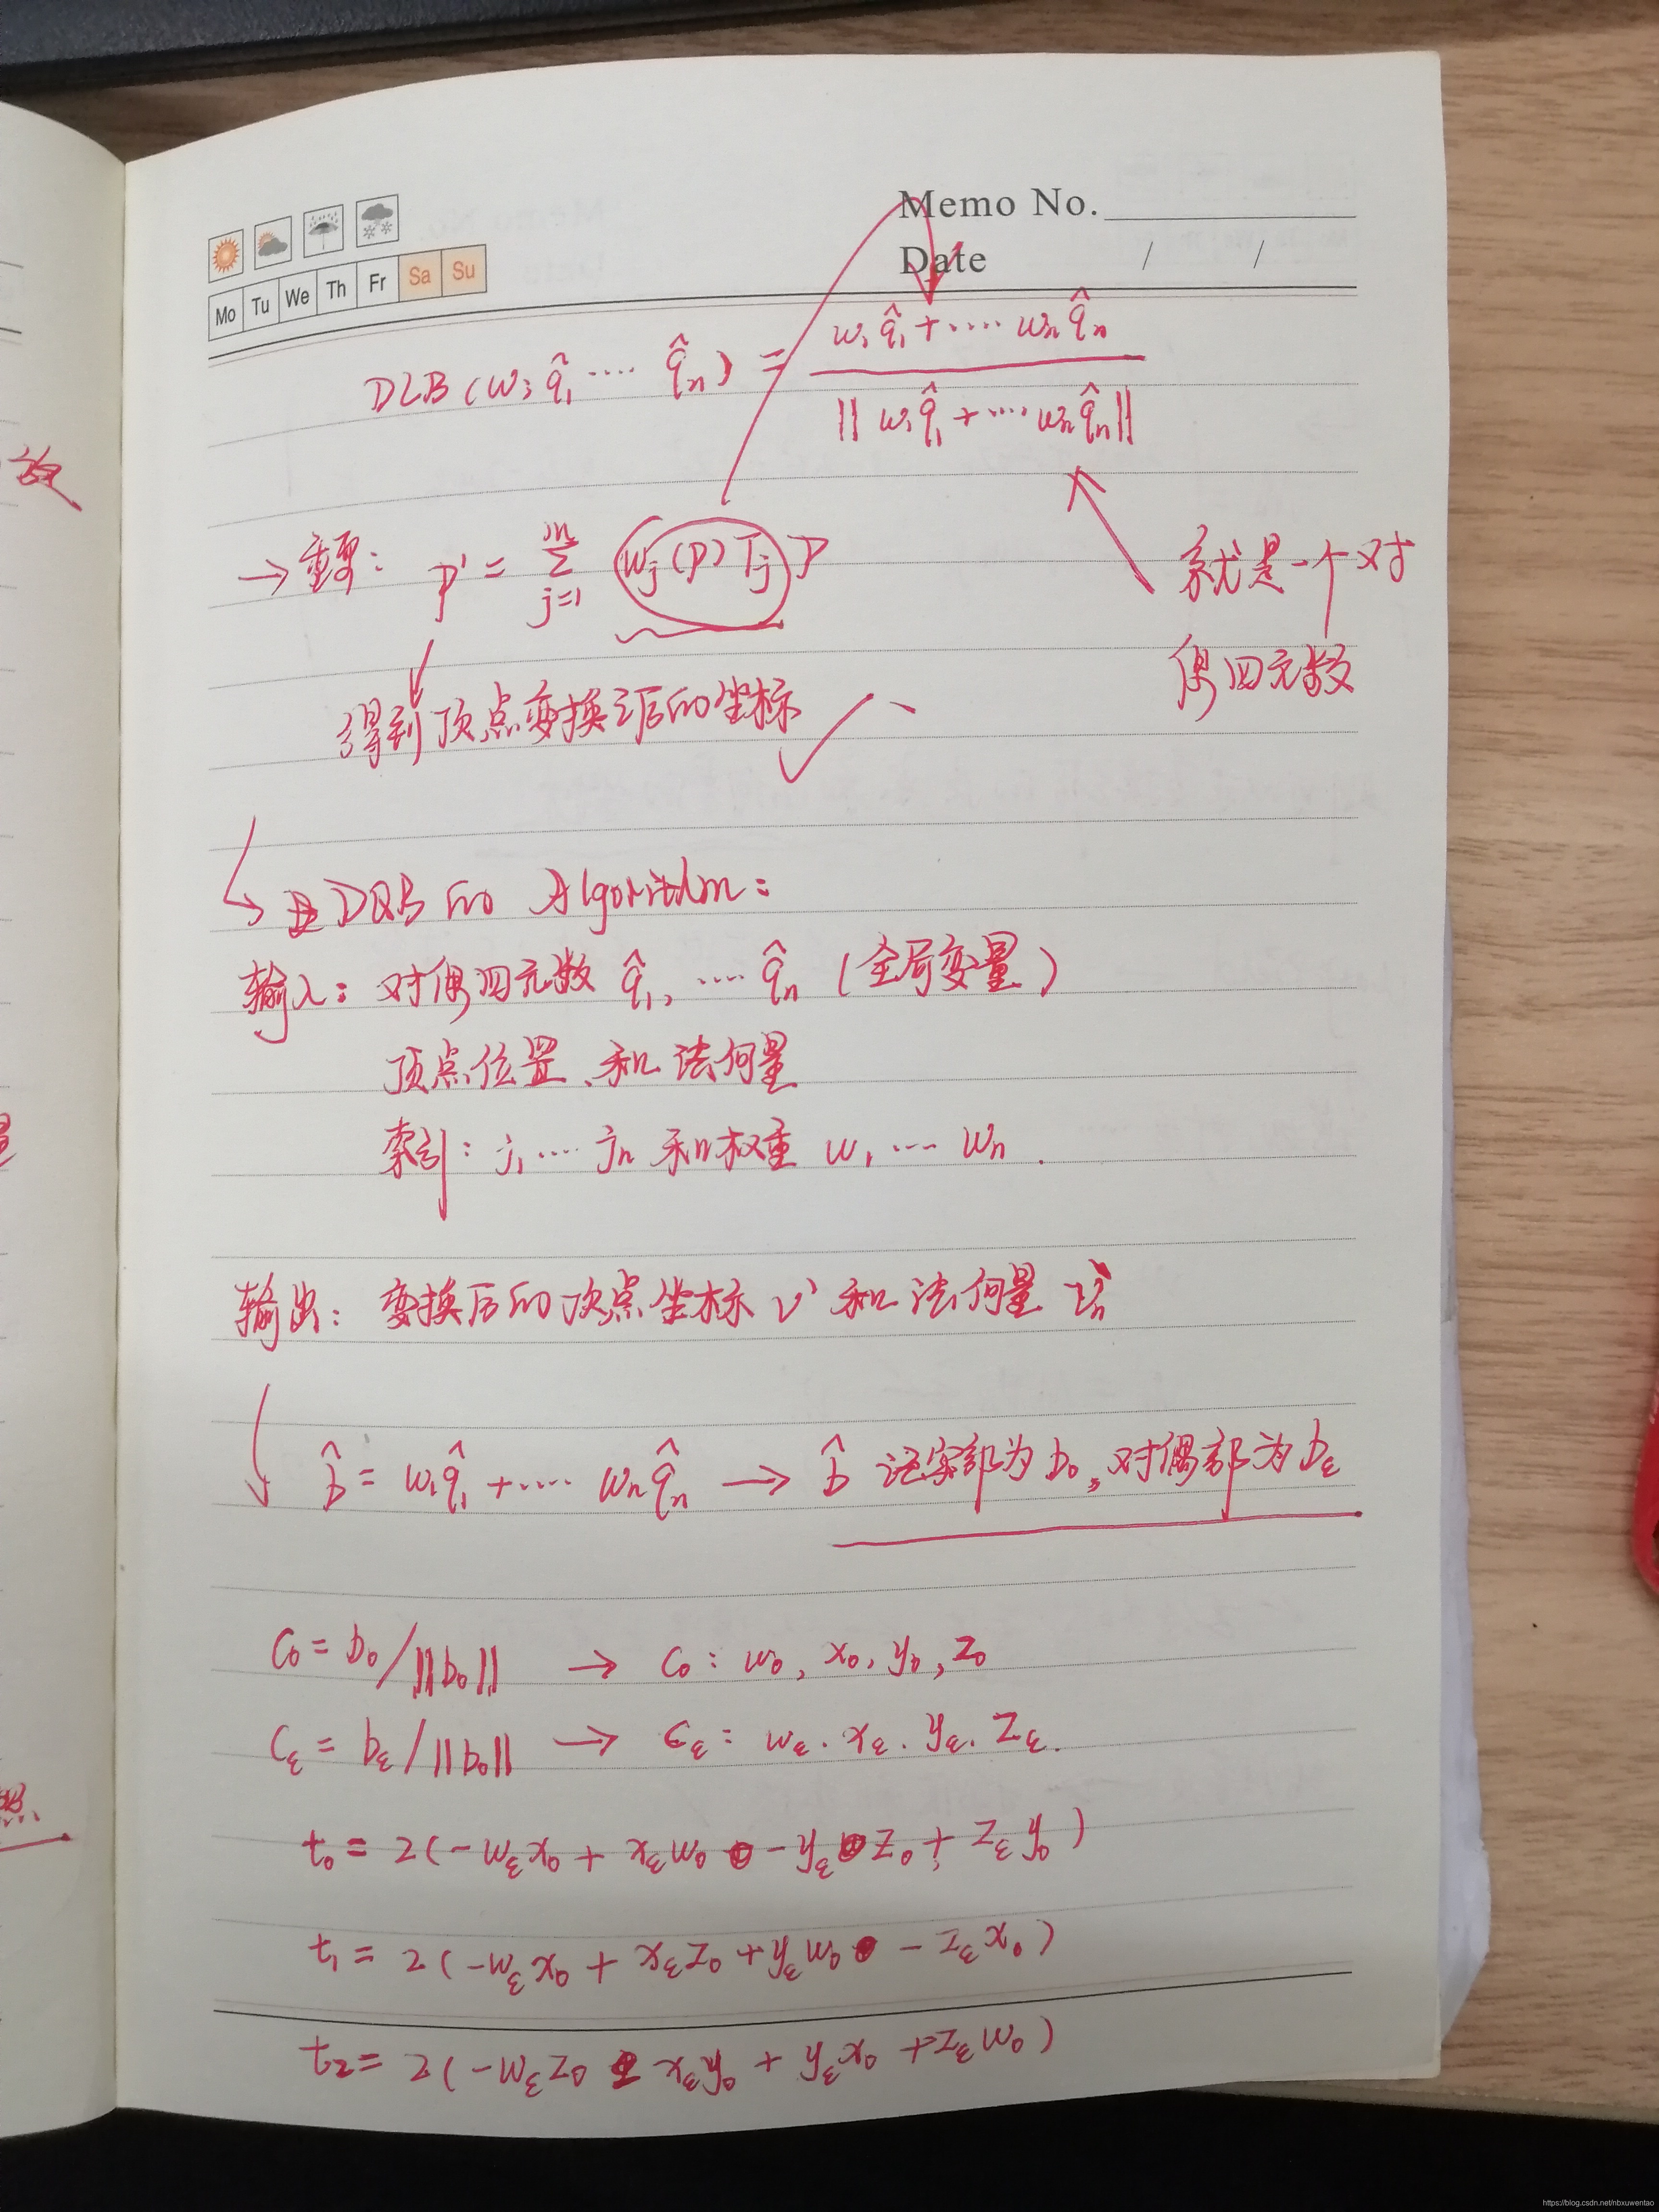 Memo No.
Date / /
Mo Tu We Th Fr Sa Su
放
DLB(w; q̂₁ ···· q̂ₙ) = (w₁q̂₁ + ···· wₙq̂ₙ) / ‖w₁q̂₁ + ···· wₙq̂ₙ‖
→ 重要: p' = Σⱼ₌₁ᵐ (wⱼ(p) Tⱼ) p
就是一个对
偶四元数
得到顶点变换之后的坐标
DQB 的 Algorithm:
输入: 对偶四元数 q̂₁, ···· q̂ₙ (全局变量)
顶点位置、和法向量
索引: j₁ ···· jₙ 和权重 w₁ ···· wₙ.
输出: 变换后的顶点坐标 v' 和法向量
b̂ = w₁q̂₁ + ···· wₙq̂ₙ → b̂ 记实部为 b₀, 对偶部为 b_ε
c₀ = b₀/‖b₀‖ → c₀: w₀, x₀, y₀, z₀
c_ε = b_ε/‖b₀‖ → c_ε: w_ε. x_ε. y_ε. z_ε.
t₀ = 2(-w_ε x₀ + x_ε w₀ - y_ε z₀ + z_ε y₀)
t₁ = 2(-w_ε x₀ + x_ε z₀ + y_ε w₀ - z_ε x₀)
t₂ = 2(-w_ε z₀ x_ε y₀ + y_ε x₀ + z_ε w₀)
https://blog.csdn.net/nbxuwentao